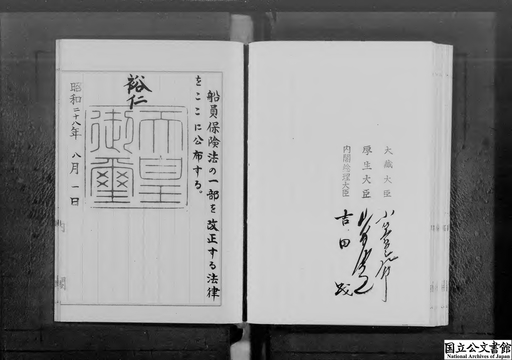 船員保険法の一部を改正する法律
をここに公布する。
裕仁
天皇
御璽
昭和二十八年 八月 一日
内閣
大蔵大臣
厚生大臣
内閣総理大臣 吉田
国立公文書館
National Archives of Japan